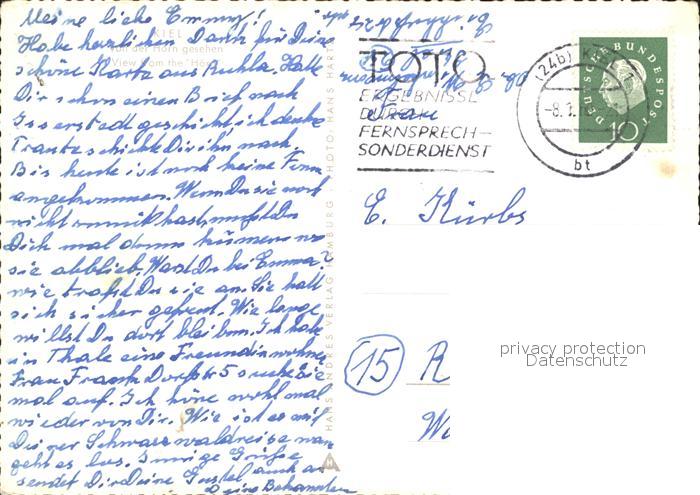 Meine liebe Emmy!
Habe herzlichen Dank für Deine
schöne Karte aus Ruhla. Hatte
Dir schon einen Brief nach
geschickt, ich denke
Traute schickte Dir ihn nach.
Bis heute ist noch keine Tinn
angekommen. Wenn Du sie noch
nicht zurück hast, mußt Du
Dich mal darum kümmern wo
sie abblieb. Warst Du bei Emma?
wie trafst Du sie an. Sie hatt
sich sicher gefreut. Wie lange
willst Du dort bleiben. Ich habe
in Thale eine Freundin wohnen
Frau Frank Dorfstr 5 suche sie
mal auf. Ich höre wohl mal
wieder von Dir. Wie ist es mit
Deiner Schwarzwaldreise wann
geht es los. Innige Grüße
sendet Dir Deine Gustel auch an
Deine Bekannten
KIEL
Von der Hörn gesehen
View from the "Hörn"
HANS ANDRES VERLAG, HAMBURG PHOTO: HANS HARTZ
TOTO
ERGEBNISSE
DURCH
FERNSPRECH-
SONDERDIENST
(24b) KIEL
-8.1.
bt
DEUTSCHE BUNDESPOST
10
Frau
E. Kürbs
(15) R
W
privacy protection
Datenschutz